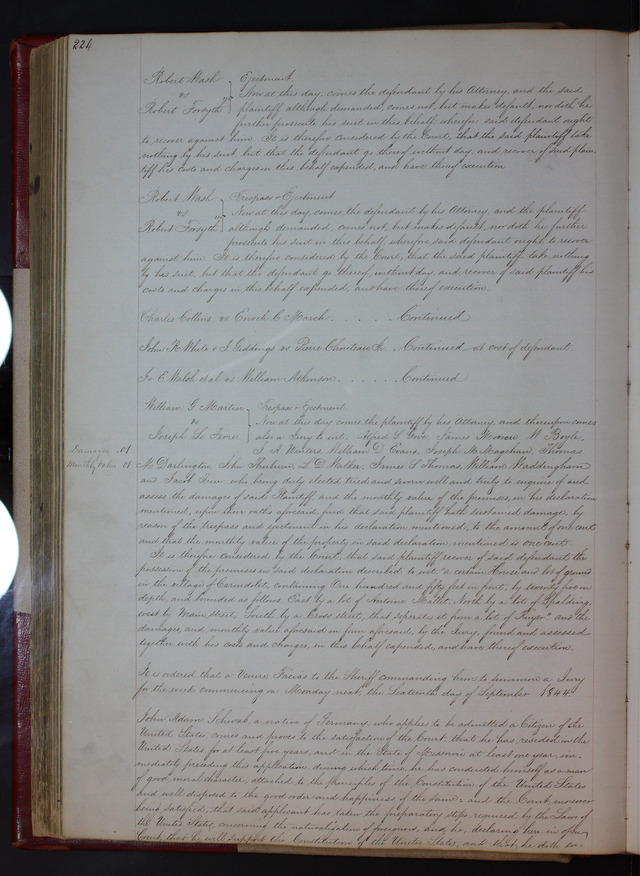 224
Robert Wash } Ejectment
vs } Now at this day, comes the defendant by his Attorney, and the said
Robert Forsyth } plaintiff although demanded, comes not, but makes default, nor doth he
further prosecute his suit in this behalf wherefore said defendant ought
to recover against him. It is therefore considered by the Court, that the said plaintiff take
nothing by his suit, but that the defendant go thereof without day, and recover of said plain-
tiff his costs and charges in this behalf expended, and have thereof execution
Robert Wash } Trespass & Ejectment
vs } Now at this day, comes, the defendant by his Attorney, and the plaintiff
Robert Forsyth } although demanded, comes not, but makes default, nor doth he further
prosecute his suit in this behalf, wherefore said defendant ought to recover
against him It is therefore considered by the Court, that the said plaintiff take nothing
by his suit, but that the defendant go thereof, without day, and recover of said plaintiff his
costs and charges in this behalf expended, and have thereof execution.
Charles Collins vs Enoch C March . . . . . . Continued
John R White & J Giddings vs Pierre Chouteau Jr . . Continued at cost of defendant
J & E Walsh et al vs William Atkinson . . . . . . Continued
William G Martin } Trespass & Ejectment
vs } Now at this day comes the plaintiff by his Attorney, and thereupon comes
Joseph Le Favre } also a Jury to wit. Alfred S Gove James W Boyle,
Damages .01 J. A Winters, William D Evans, Joseph Thomas
Monthly Value 01 Mc Darlington John Thurburn L D Walker, James S Thomas, William Waddingham
and Jacob who being duly elected tried and sworn well and truly to enquire of and
assess the damages of said Plaintiff and the monthly value of the premises, in his declaration
mentioned, upon their oaths aforesaid, find that said plaintiff hath sustained damage, by
reason of the trespass and ejectment in his declaration mentioned, to the amount of one cent
and that the monthly value of the property in said declaration mentioned is one cent.
It is therefore considered by the Court, that said plaintiff recover of said defendant the
possession of the premises in said declaration described to wit "a certain House and lot of ground
in the village of Carondelet, containing One hundred and fifty feet in front, by seventy five in
depth, and bounded as follows East by a lot of Antoine Mallet, North by a lot of Spalding,
west by Main street, South by a Cross street, that separates it from a lot of and the
damages, and monthly value aforesaid in form aforesaid, by the Jury, found and assessed
together with his costs and charges, in this behalf expended, and have thereof execution.
It is ordered that a Venire Facias to the Sheriff commanding him to summon a Jury
for the week commencing on Monday next, the Sixteenth day of September 1844
John Adam Schwab, a native of Germany, who applies to be admitted a Citizen of the
United States, comes and proves to the satisfaction of the Court, that he has resided in the
United States for at least five years, and in the State of Missouri at least one year, im-
mediately preceding this application, during which time he has conducted himself as a man
of good moral character, attached to the principles of the Constitution of the United States
and well disposed to the good order and happiness of the same: and the Court, moreover
being satisfied, that said applicant has taken the preparatory steps required by the Laws of
the United States, concerning the naturalization of foreigners, and he, declaring here in open
Court, that he will support the Constitution of the United States, and that he doth en-